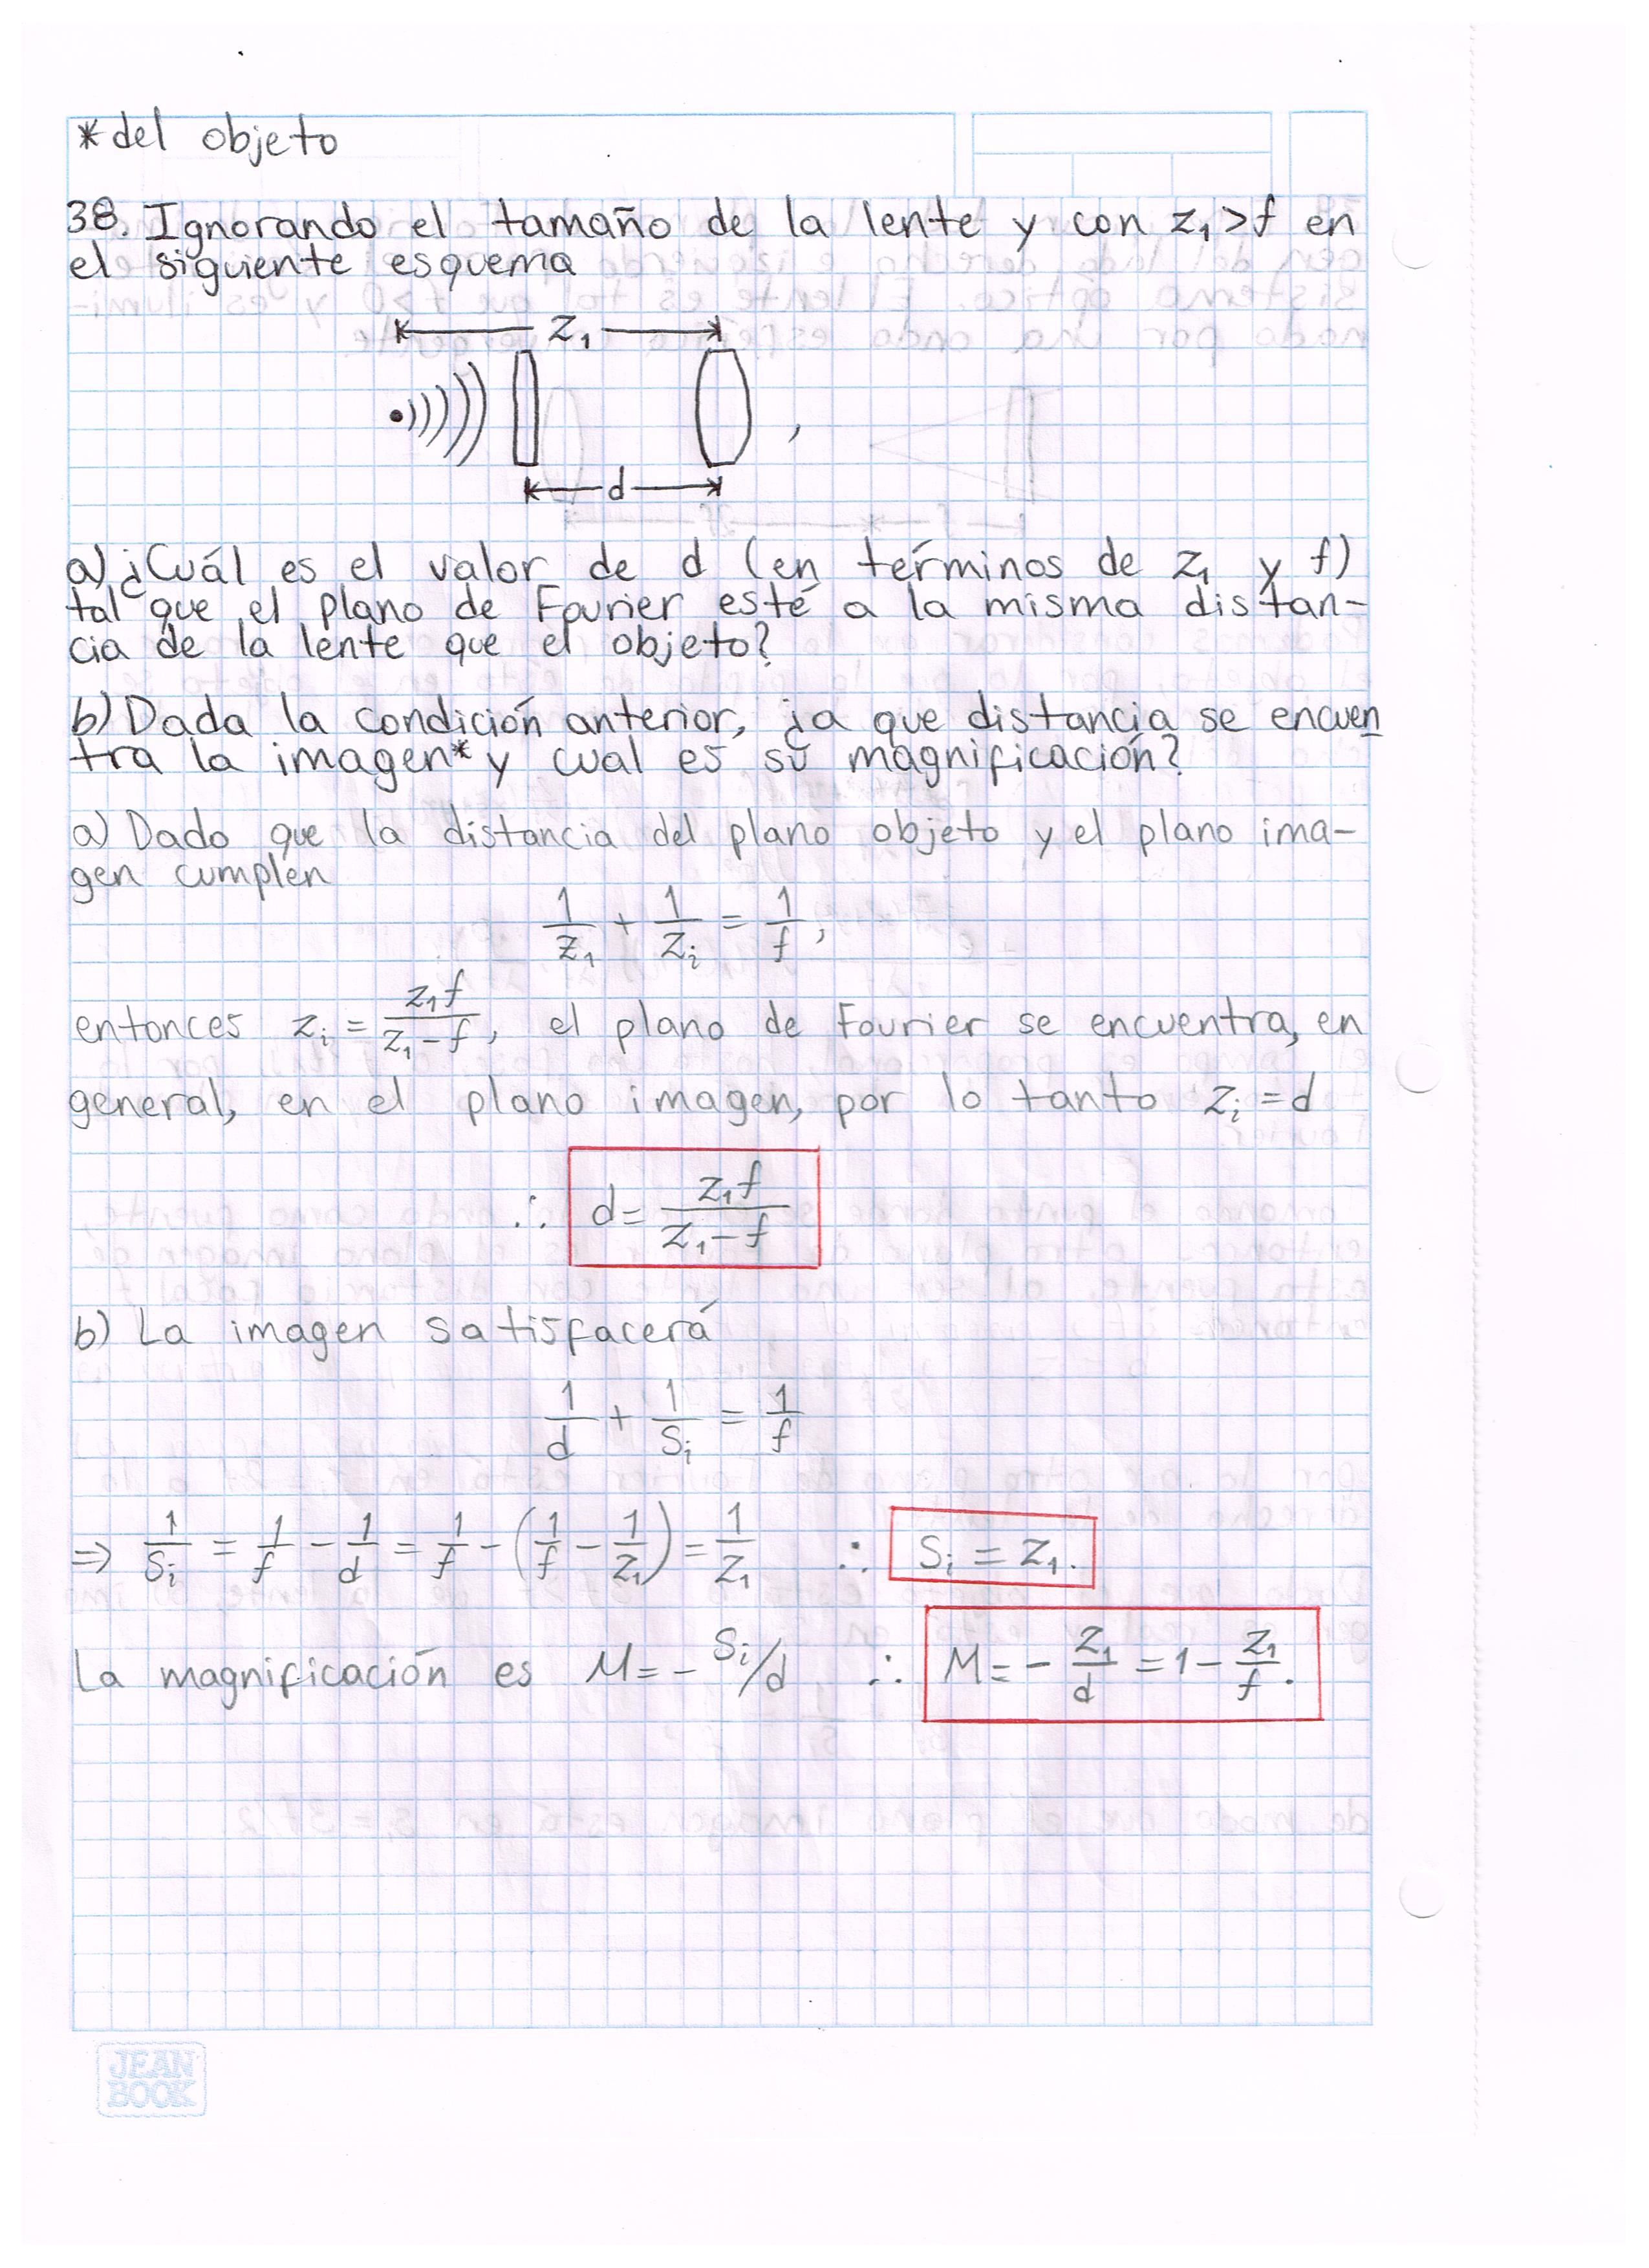 *del objeto
38. Ignorando el tamaño de la lente y con z₁>f en
el siguiente esquema
z₁
,
d
a) ¿Cuál es el valor de d (en términos de z₁ y f)
tal que el plano de Fourier esté a la misma distan-
cia de la lente que el objeto?
b) Dada la condición anterior, ¿a que distancia se encuen
tra la imagen* y cual es su magnificación?
a) Dado que la distancia del plano objeto y el plano ima-
gen cumplen
1/z₁ + 1/zᵢ = 1/f,
entonces zᵢ = z₁f/(z₁-f), el plano de Fourier se encuentra, en
general, en el plano imagen, por lo tanto zᵢ = d
∴ d = z₁f/(z₁-f)
b) La imagen satisfacerá
1/d + 1/sᵢ = 1/f
⇒ 1/sᵢ = 1/f - 1/d = 1/f - (1/f - 1/z₁) = 1/z₁ ∴ sᵢ = z₁.
La magnificación es M = - sᵢ/d ∴ M = - z₁/d = 1 - z₁/f.
JEAN
BOOK